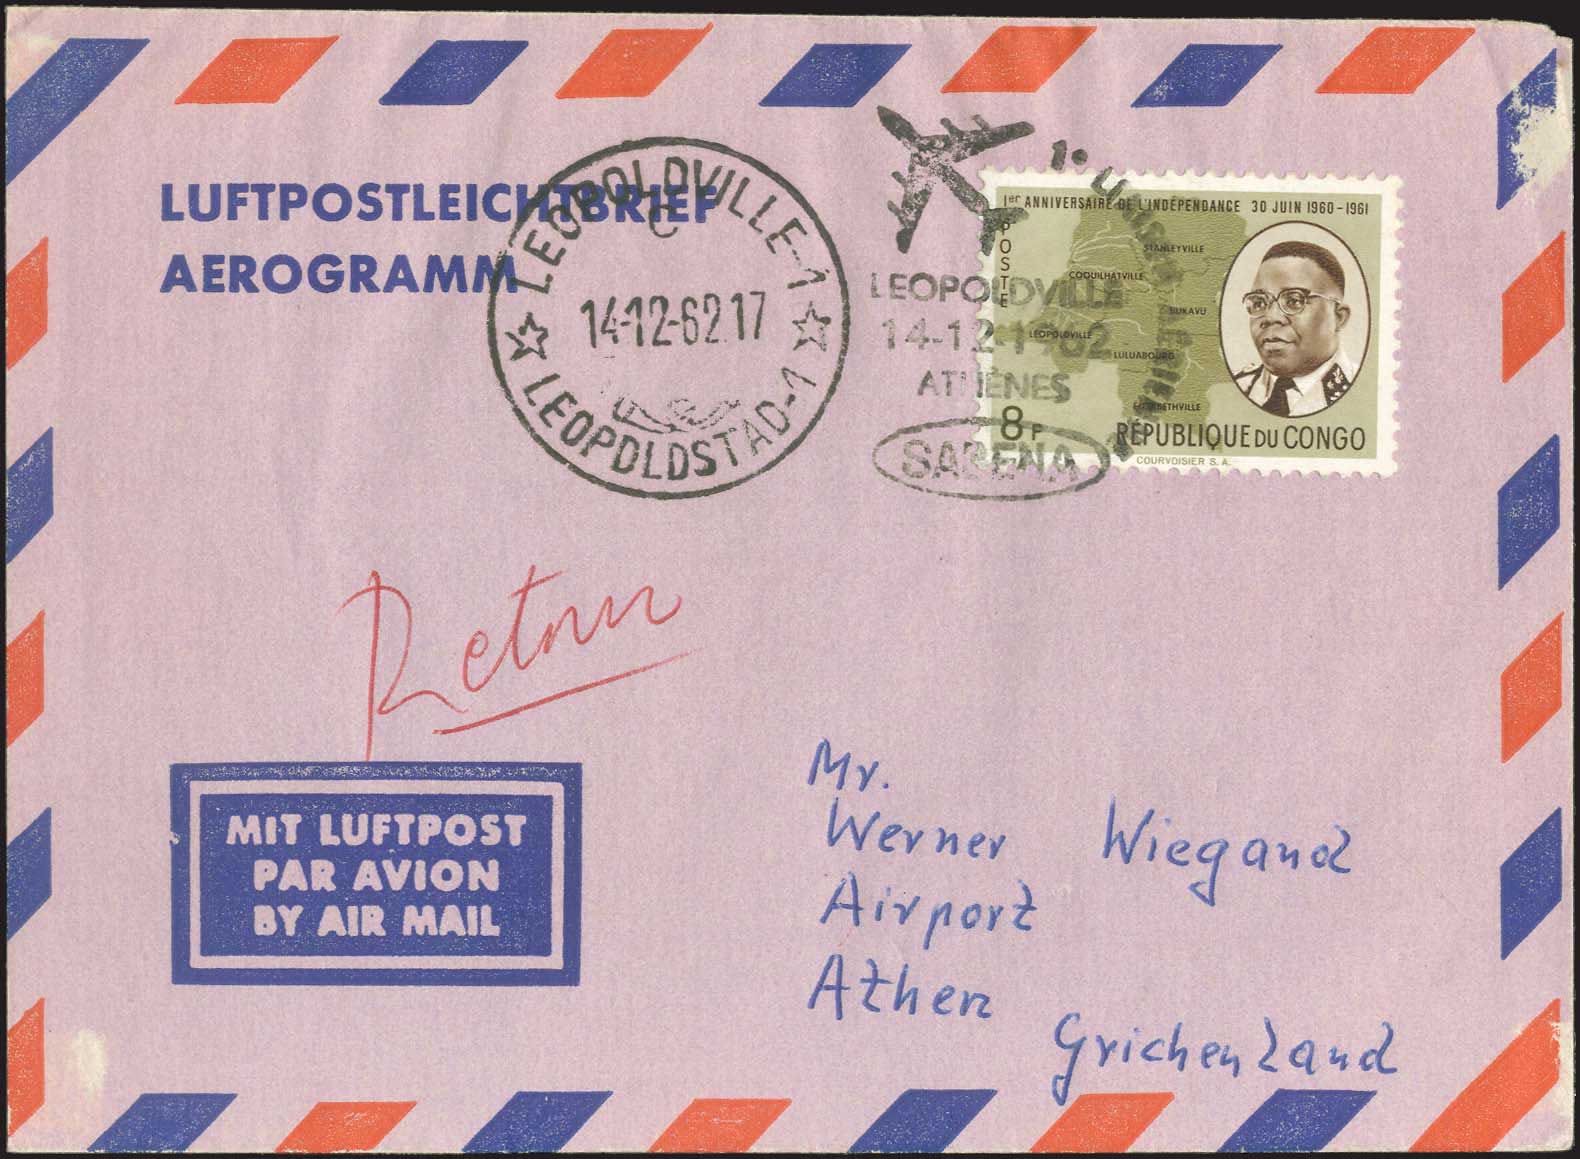 LUFTPOSTLEICHTBRIEF
AEROGRAMM
LEOPOLDVILLE-1
C
14-12-62 17
LEOPOLDSTAD-1
LEOPOLDVILLE
14-12-1962
ATHÈNES
SABENA
1er ANNIVERSAIRE DE L'INDÉPENDANCE 30 JUIN 1960-1961
POSTE
STANLEYVILLE
COQUILHATVILLE
BUKAVU
LEOPOLDVILLE
LULUABOURG
ELISABETHVILLE
8F
RÉPUBLIQUE DU CONGO
COURVOISIER S.A.
Retour
MIT LUFTPOST
PAR AVION
BY AIR MAIL
Mr.
Werner Wiegand
Airport
Athen
Grichenland